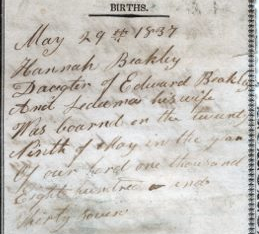 BIRTHS.
May 29th 1837
Hannah Brakley
Daugter of Edward Brakley
And his wife
Was bournd on the twenty
Ninth of May in the year
of our lord one thousand
Eight hundred and
thirty seven